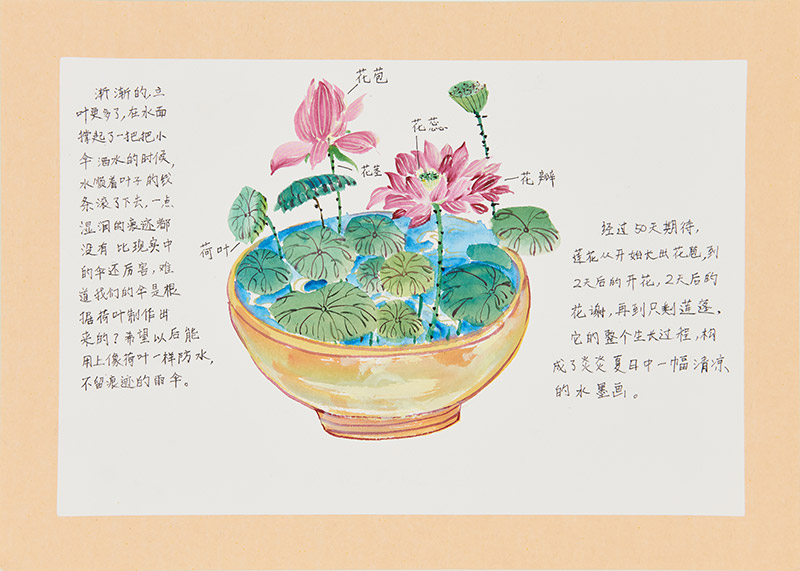 渐渐的,立
叶更多了,在水面
撑起了一把把小
伞 洒水的时候,
水顺着叶子的纹
条滚了下去,一点
湿润的痕迹都
没有 比现实中
的伞还厉害,难
道我们的伞是根
据荷叶制作出
来的?希望以后能
用上像荷叶一样防水,
不留痕迹的雨伞。
花苞
花蕊
花茎
花瓣
荷叶
经过50天期待,
莲花从开始长出花苞,到
2天后的开花,2天后的
花谢,再到只剩莲蓬,
它的整个生长过程,构
成了炎炎夏日中一幅清凉
的水墨画。